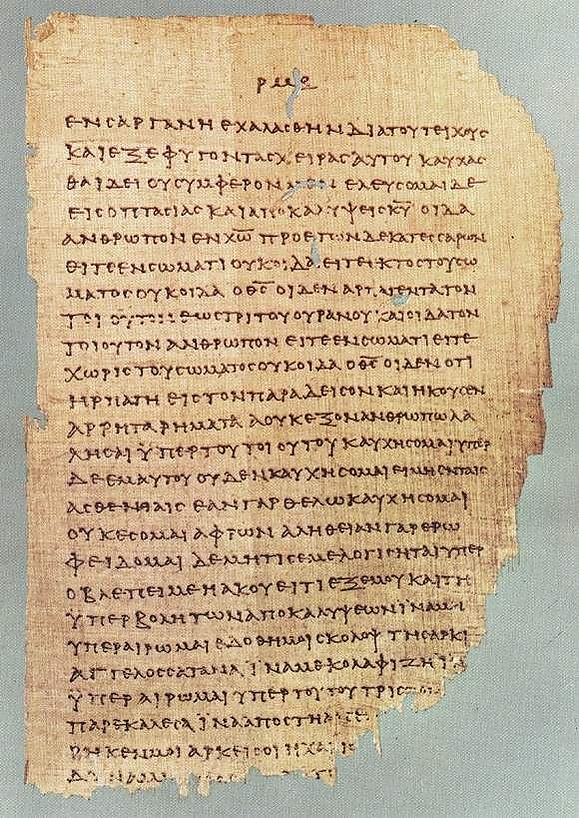 ΕΝ ΣΑΡΓΑΝΗ ΕΧΑΛΑΣΘΗΝ ΔΙΑ ΤΟΥ ΤΕΙΧΟΥΣ
ΚΑΙ ΕΞΕΦΥΓΟΝ ΤΑΣ ΧΕΙΡΑΣ ΑΥΤΟΥ ΚΑΥΧΑΣ
ΘΑΙ ΔΕΙ ΟΥ ΣΥΜΦΕΡΟΝ ΕΛΕΥΣΟΜΑΙ ΔΕ
ΕΙΣ ΟΠΤΑΣΙΑΣ ΚΑΙ ΑΠΟΚΑΛΥΨΕΙΣ Κ̅Υ̅ ΟΙΔΑ
ΑΝΘΡΩΠΟΝ ΕΝ Χ̅Ω̅ ΠΡΟ ΕΤΩΝ ΔΕΚΑΤΕΣΣΑΡΩΝ
ΕΙΤΕ ΕΝ ΣΩΜΑΤΙ ΟΥΚ ΟΙΔΑ ΕΙΤΕ ΕΚΤΟΣ ΤΟΥ ΣΩ
ΜΑΤΟΣ ΟΥΚ ΟΙΔΑ Ο Θ̅Σ̅ ΟΙΔΕΝ ΑΡΠΑΓΕΝΤΑ ΤΟΝ
ΤΟΙΟΥΤΟΝ ΕΩΣ ΤΡΙΤΟΥ ΟΥΡΑΝΟΥ ΚΑΙ ΟΙΔΑ ΤΟΝ
ΤΟΙΟΥΤΟΝ ΑΝΘΡΩΠΟΝ ΕΙΤΕ ΕΝ ΣΩΜΑΤΙ ΕΙΤΕ
ΧΩΡΙΣ ΤΟΥ ΣΩΜΑΤΟΣ ΟΥΚ ΟΙΔΑ Ο Θ̅Σ̅ ΟΙΔΕΝ ΟΤΙ
ΗΡΠΑΓΗ ΕΙΣ ΤΟΝ ΠΑΡΑΔΕΙΣΟΝ ΚΑΙ ΗΚΟΥΣΕΝ
ΑΡΡΗΤΑ ΡΗΜΑΤΑ Α ΟΥΚ ΕΞΟΝ ΑΝΘΡΩΠΩ ΛΑ
ΛΗΣΑΙ ΫΠΕΡ ΤΟΥ ΤΟΙΟΥΤΟΥ ΚΑΥΧΗΣΟΜΑΙ ΥΠΕΡ
ΔΕ ΕΜΑΥΤΟΥ ΟΥΔΕΝ ΚΑΥΧΗΣΟΜΑΙ ΕΙ ΜΗ ΕΝ ΤΑΙΣ
ΑΣΘΕΝΕΙΑΙΣ ΕΑΝ ΓΑΡ ΘΕΛΩ ΚΑΥΧΗΣΟΜΑΙ
ΟΥΚ ΕΣΟΜΑΙ ΑΦΡΩΝ ΑΛΗΘΕΙΑΝ ΓΑΡ ΕΡΩ
ΦΕΙΔΟΜΑΙ ΔΕ ΜΗ ΤΙΣ ΕΜΕ ΛΟΓΙΣΗΤΑΙ ΥΠΕΡ
Ο ΒΛΕΠΕΙ ΜΕ Η ΑΚΟΥΕΙ ΤΙ ΕΞ ΕΜΟΥ ΚΑΙ ΤΗ
ΫΠΕΡΒΟΛΗ ΤΩΝ ΑΠΟΚΑΛΥΨΕΩΝ ΙΝΑ ΜΗ
ΥΠΕΡΑΙΡΩΜΑΙ ΕΔΟΘΗ ΜΟΙ ΣΚΟΛΟΨ ΤΗ ΣΑΡΚΙ
ΑΓΓΕΛΟΣ ΣΑΤΑΝΑ ΙΝΑ ΜΕ ΚΟΛΑΦΙΖΗ
ΫΠΕΡΑΙΡΩΜΑΙ ΥΠΕΡ ΤΟΥΤΟΥ ΤΡΙΣ
ΠΑΡΕΚΑΛΕΣΑ ΪΝΑ ΑΠΟΣΤΗ
ΡΗΚΕΝ ΜΟΙ ΑΡΚΕΙ ΣΟΙ Η